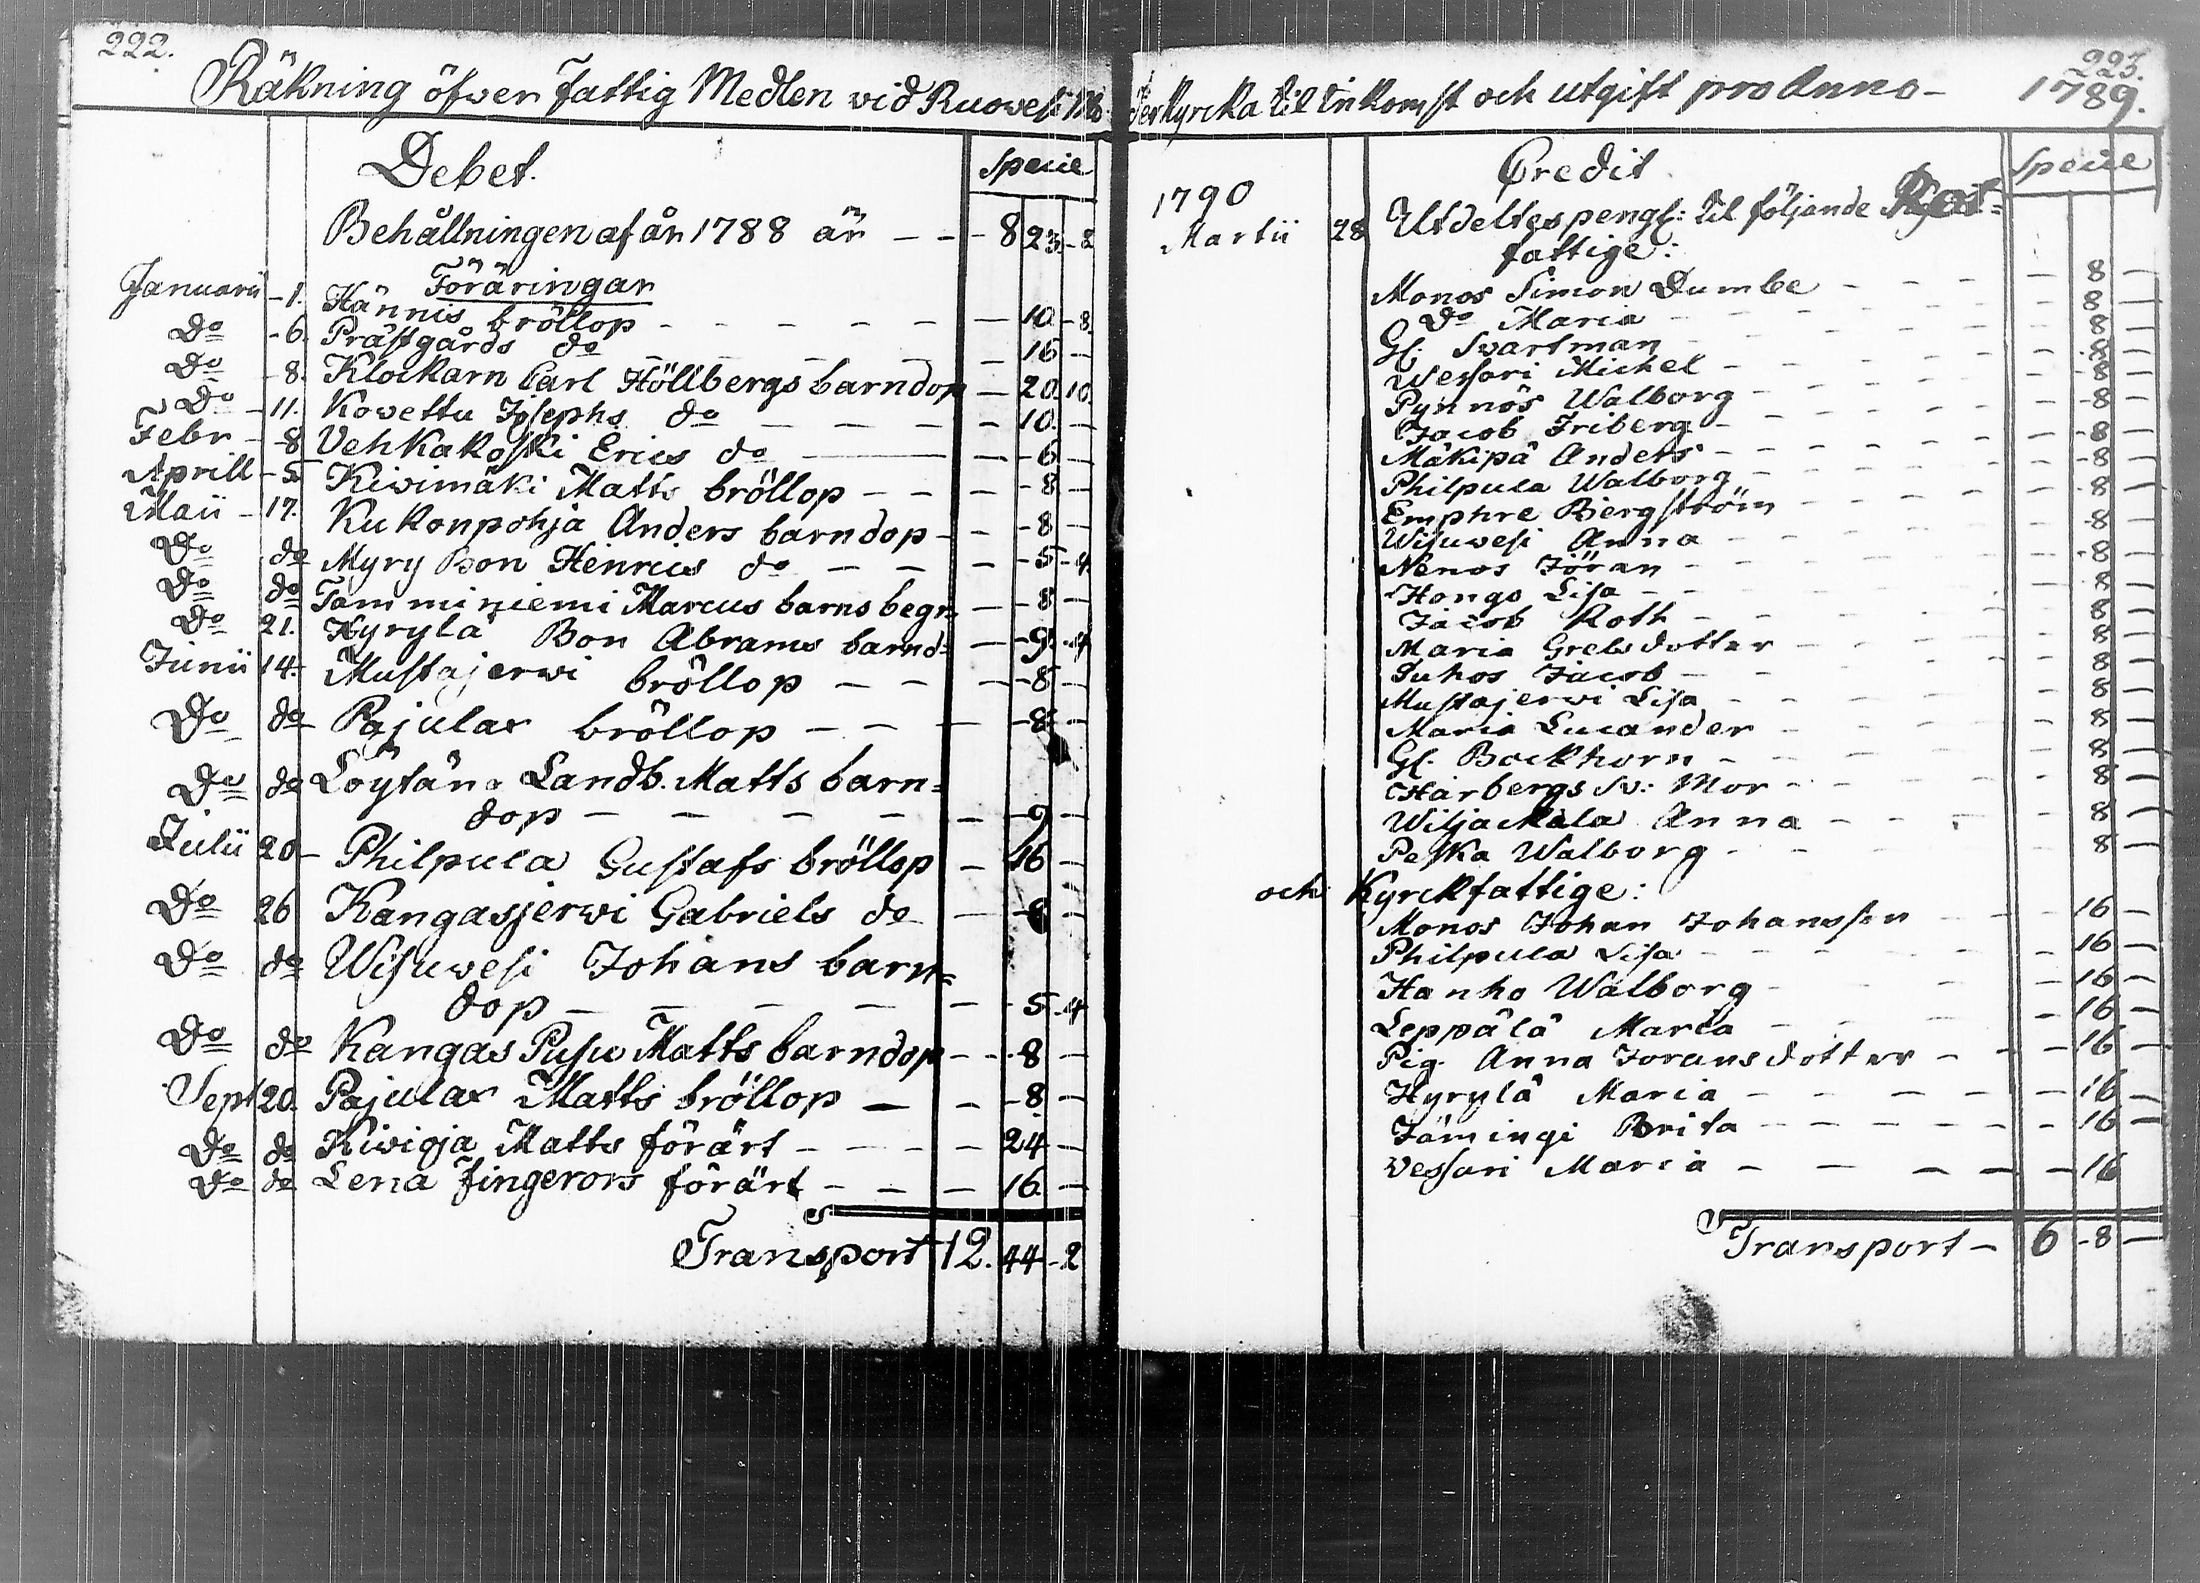 222.
Räkning öfwer Fattig Medlen vid Ruowesi
Debet. Specie
Behållningen af år 1788 är - - - 8 23 - 2
Föräringar
Januarii - 1. Hännis bröllop - - - - - - 10. - 8.
Do - 6. Prästgårds do - - - - 16 -
Do - 8. Klockarn Carl Höllbergs barndop - 20. 10.
Do - 11. Kovettu Josephs do - - - - 10. -
Febr - 8 Vehkakoski Erics do - - 6 -
Aprill - 5 Kivimäki Matts bröllop - - - - 8 -
Maii - 17. Kukonpohja Anders barndop - - - 8 -
Do do Myry Bon Henrics do - - - - 5 - 4.
Do do Tamminiemi Marcus barns begr. - - 8 -
Do 21. Hyrylä Bon Abrams barnd= - - 9. - 4
Junii 14. Mustajerwi bröllop - - - - 8 -
Do do Pajulax bröllop - - - - 8 -
Do do Löytän Landb. Matts barn=
dop - - - - - - 9 -
Julii 20 - Philpula Gustafs bröllop - 16 -
Do 26 Kangasjerwi Gabriels do - - 8 -
Do do Wisuwesi Johans barn=
dop - - - - - 5 - 4
Do do Kangas Pusu Matts barndop - - - 8 -
Sept 20. Pajulax Matts bröllop - - - 8 -
Do do Kivioja Matts förärt - - - - 24 -
Do do Lena Fingerors förärt - - - 16. -
Transport 12. 44 - 2
223.
Kyrcka til Inkomst och utgift pro Anno - 1789.
Credit Specie
1790
Martii 28 Utdeltes pengr: til följande
fattige:
Monos Simon Dumbe - - - - 8 -
Do Maria - - - - 8 -
Gl. Svartman - - - - 8 -
Wessari Michel - - - - 8 -
Pynnös Walborg - - - - 8 -
Jacob Friberg - - - - 8 -
Mäkipä Anders - - - - 8 -
Philpula Walborg - - - - 8 -
Emphre Bergström - - - - 8 -
Wisuwesi Anna - - - - 8 -
Nenos Jöran - - - - 8 -
Hongo Lisa - - - - 8 -
Jacob Roth - - - - 8 -
Maria Grelsdotter - - - - 8 -
Suhos Jacob - - - - 8 -
Mustajerwi Lisa - - - - 8 -
Maria Lucander - - - - 8 -
Gl. Bockhorn - - - - 8 -
Harbergs Sv: Mor - - - - 8 -
Wiljackala Anna - - - - 8 -
Peska Walborg - - - - 8 -
och Kyrckfattige:
Monos Johan Johansson - - - 16 -
Philpula Lisa - - - - 16 -
Hanho Walborg - - - - 16 -
Leppälä Maria - - - - 16 -
Pig. Anna Joransdotter - - - 16 -
Hyrylä Maria - - - - - 16 -
Jämingi Brita - - - - - 16 -
Wessari Maria - - - - - 16
Transport - 6 - 8 -